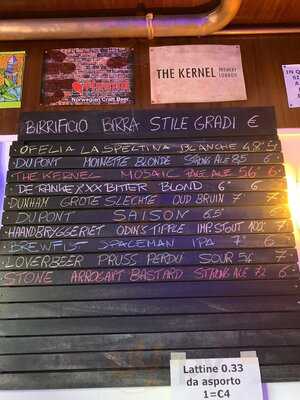 Norwegian Craft Beer
THE KERNEL
BREWERY
LONDON
BIRRIFICIO BIRRA STILE GRADI €
OFELIA LA SPETTINA BLANCHE 4.8° 5
DUPONT MOINETTE BLONDE STRONG ALE 8.5 6
THE KERNEL MOSAIC PALE ALE 5.6° 6
DE RANKE XXX BITTER BLOND 6° 6
DUNHAM GROTE SLECHTE OUD BRUIN 7 7
DUPONT SAISON 6.5° 6
HAANDBRYGGERIET ODIN'S TIPPLE IMP. STOUT 7
BREWFIST SPACEMAN IPA 7° 6
LOVERBEER PRUSS PERDU SOUR 5.6 7
STONE ARROGANT BASTARD STRONG ALE 7.2 6
Lattine 0.33
da asporto
1=€4